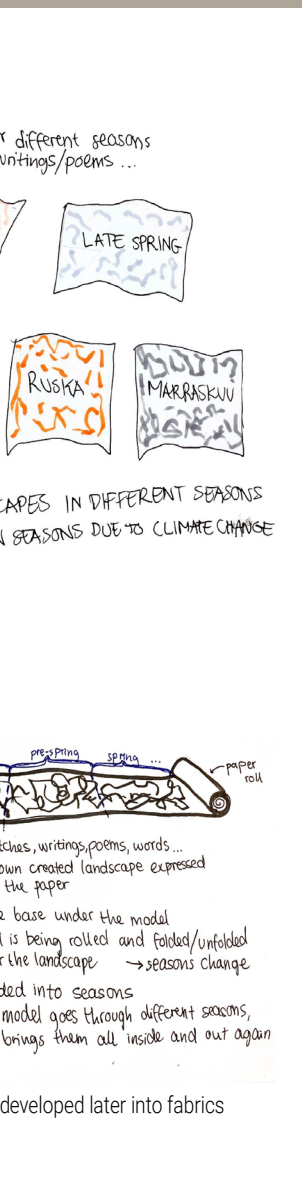 r different seasons
writings/poems ...
LATE SPRING
RUSKA
MARRASKUU
CAPES IN DIFFERENT SEASONS
N SEASONS DUE TO CLIMATE CHANGE
pre-spring
spring ...
paper
roll
tches, writings, poems, words ...
own created landscape expressed
the paper
e base under the model
l is being rolled and folded/unfolded
r the landscape → seasons change
ded into seasons
model goes through different seasons,
brings them all inside and out again
developed later into fabrics